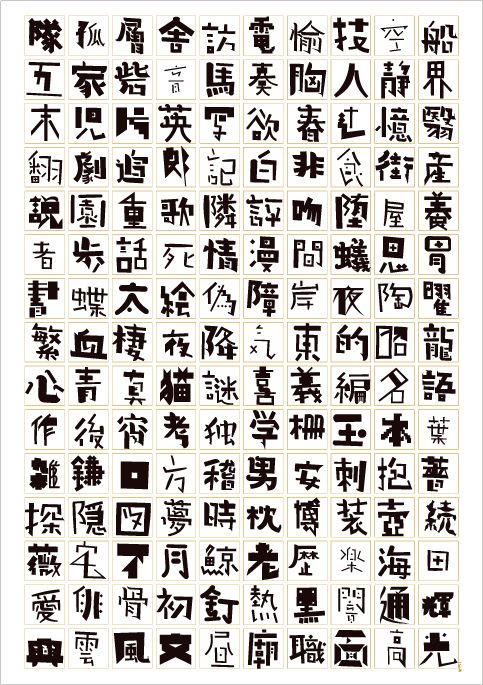 隊孤層舎訪電愉技空船
五家砦盲馬奏胸人静界
末児片英写欲春七憶翳
翻劇追郎記白非食街産
説園重歌隣評吻堕屋養
者歩話死情漫間蟻恩胃
書蝶太絵偽障岸夜陶曜
繁血棲夜降気東的昭龍
心青真猫謎喜義編名語
作後宵考独学柵玉本葉
雛鎌口方稽男安刺抱薔
探隠図夢時枕博装壺続
薇宅不月鯨老歴楽海田
愛俳骨初釘熱黒闇通輝
典雲風文昼廟職面高光